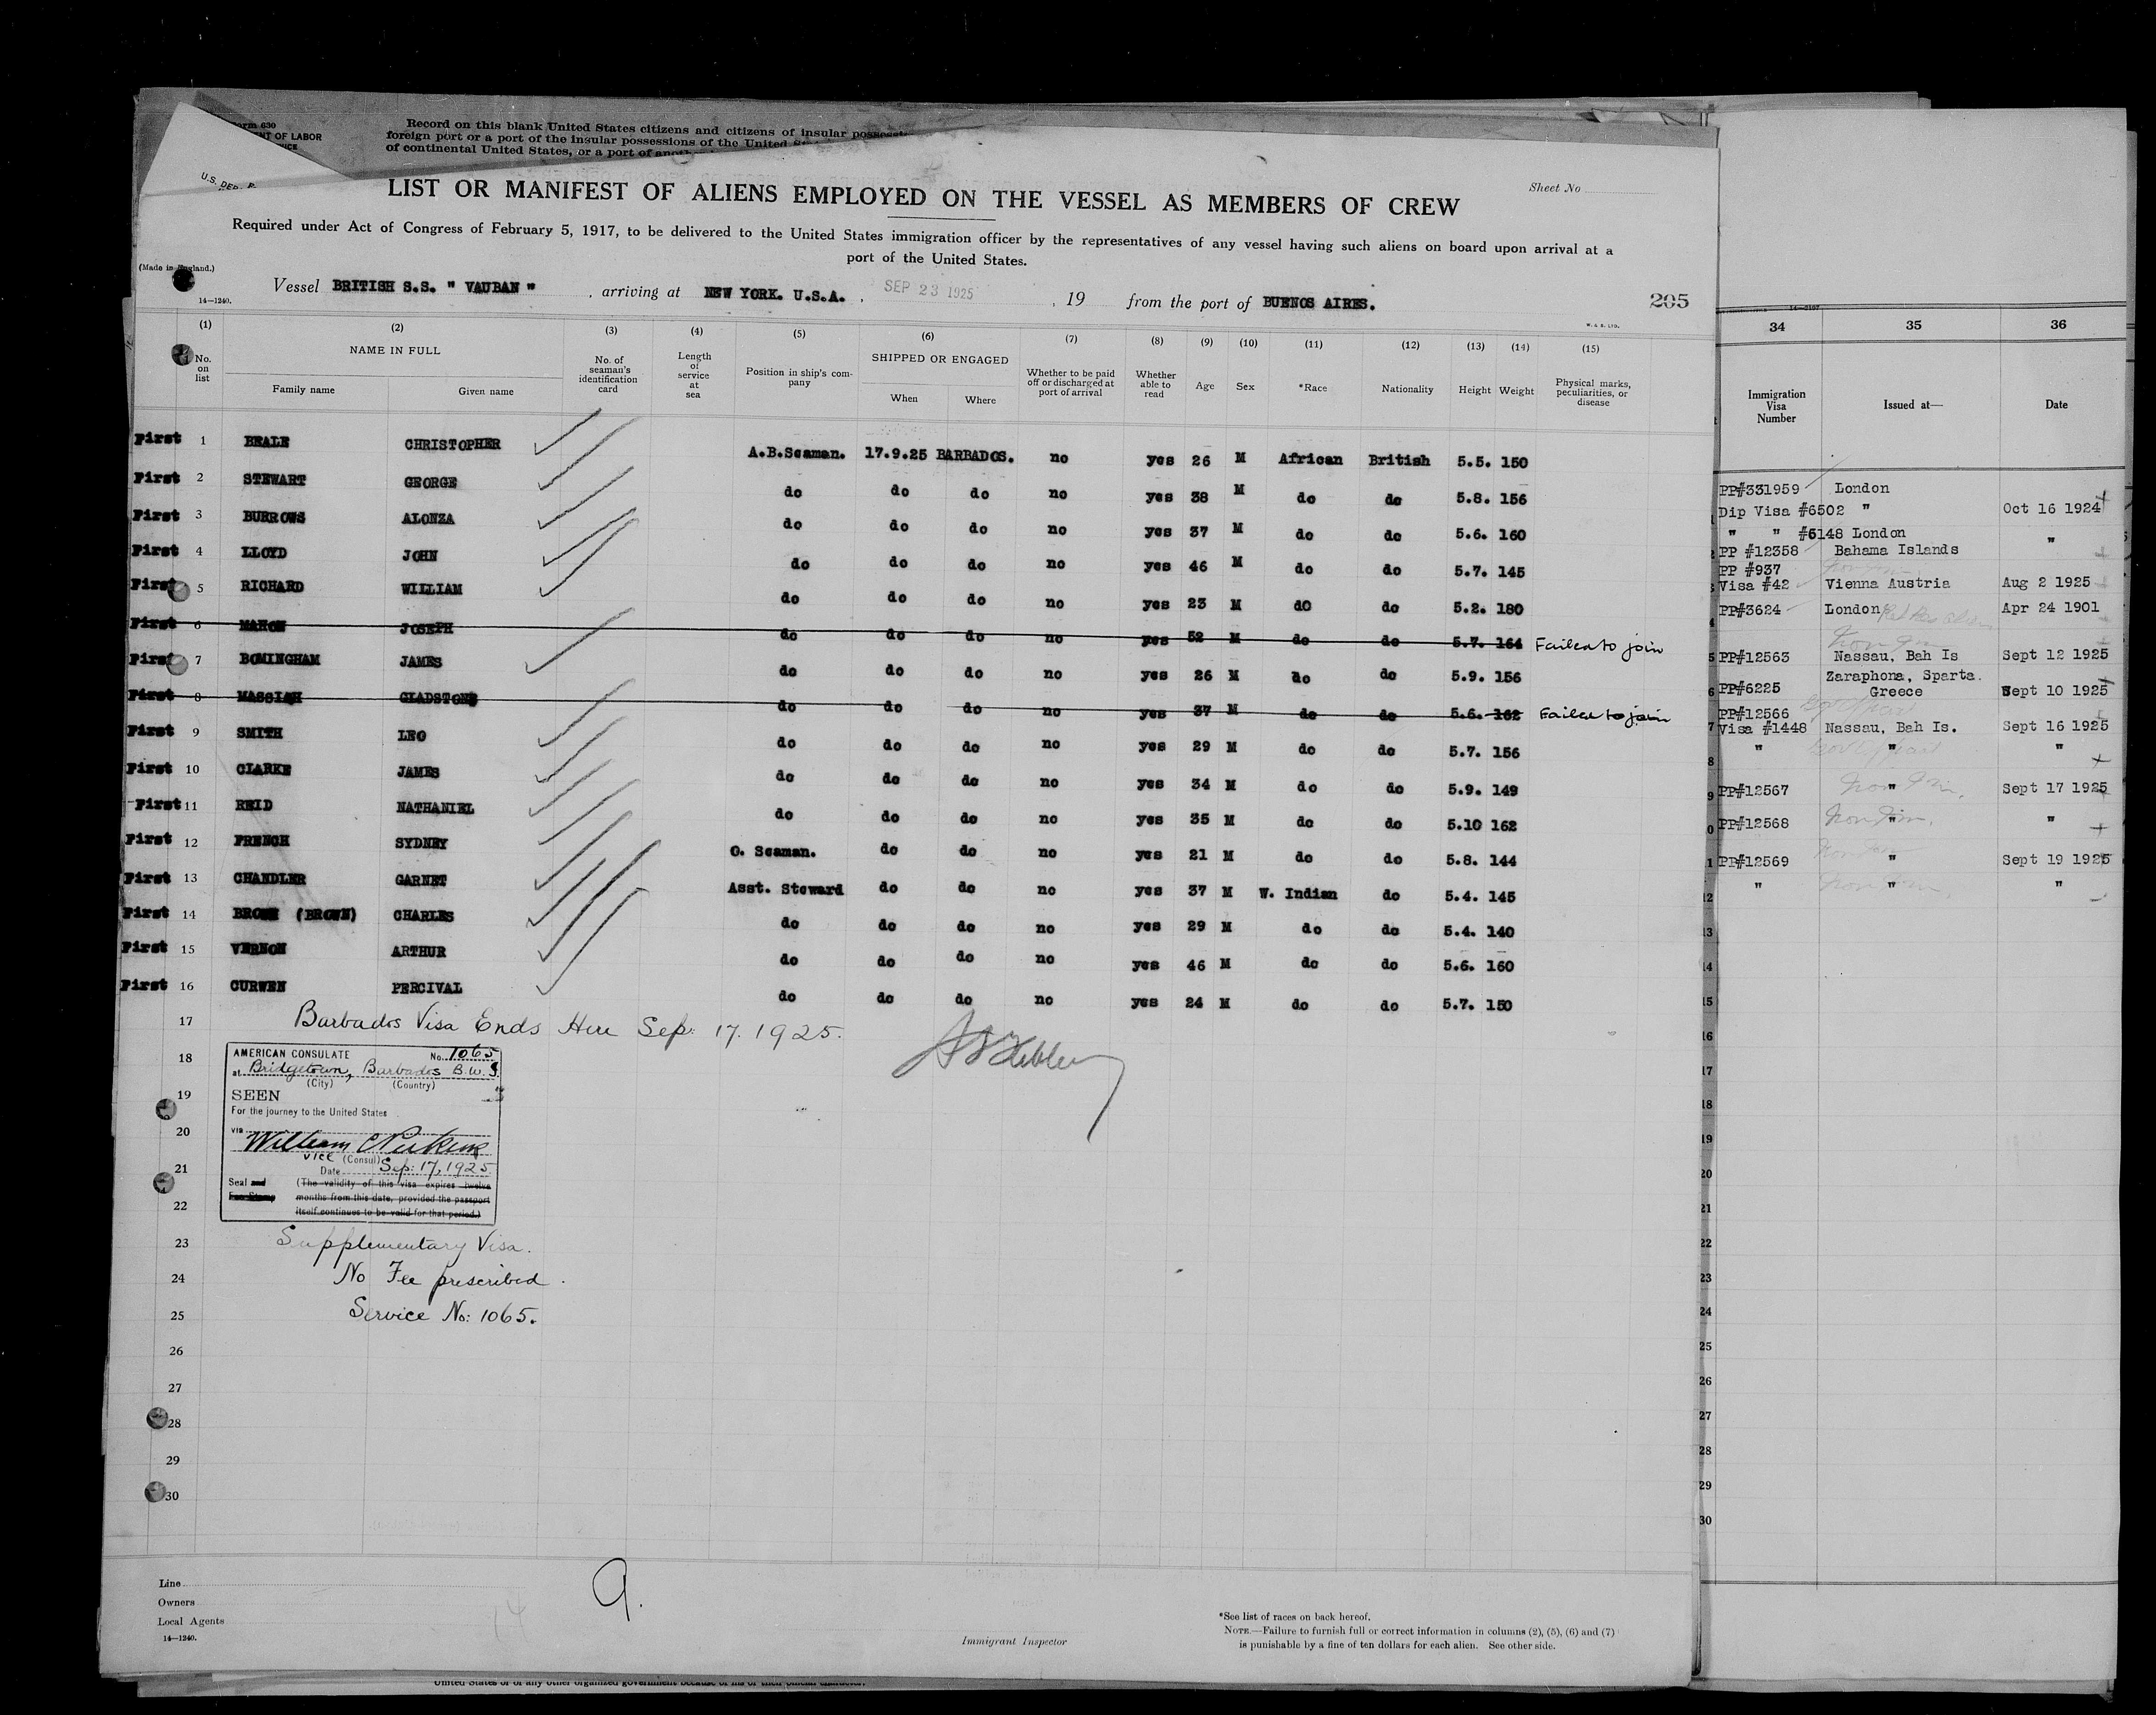 Form 630
ENT OF LABOR
Record on this blank United States citizens and citizens of insular
foreign port or a port of the insular possessions of the United
of continental United States, or a port of
U.S. DEP
Sheet No
LIST OR MANIFEST OF ALIENS EMPLOYED ON THE VESSEL AS MEMBERS OF CREW
Required under Act of Congress of February 5, 1917, to be delivered to the United States immigration officer by the representatives of any vessel having such aliens on board upon arrival at a
port of the United States.
(Made in England.)
14—1240.
Vessel BRITISH S.S. " VAUBAN " , arriving at NEW YORK. U.S.A. , SEP 23 1925 , 19 from the port of BUENOS AIRES. 205
W. & S. LTD.
(1) (2) (3) (4) (5) (6) (7) (8) (9) (10) (11) (12) (13) (14) (15)
No. on list NAME IN FULL Family name Given name No. of seaman's identification card Length of service at sea Position in ship's company SHIPPED OR ENGAGED When Where Whether to be paid off or discharged at port of arrival Whether able to read Age Sex *Race Nationality Height Weight Physical marks, peculiarities, or disease
First 1 BEALE CHRISTOPHER A.B.Seaman. 17.9.25 BARBADOS. no yes 26 M African British 5.5. 150
First 2 STEWART GEORGE do do do no yes 38 M do do 5.8. 156
First 3 BURROWS ALONZA do do do no yes 37 M do do 5.6. 160
First 4 LLOYD JOHN do do do no yes 46 M do do 5.7. 145
First 5 RICHARD WILLIAM do do do no yes 23 M do do 5.2. 180
First 6 MAHON JOSEPH do do do no yes 52 M do do 5.7. 164 Failed to join
First 7 BOMINGHAM JAMES do do do no yes 26 M do do 5.9. 156
First 8 MASSIAH GLADSTONE do do do no yes 37 M do do 5.6. 162 Failed to join
First 9 SMITH LEO do do do no yes 29 M do do 5.7. 156
First 10 CLARKE JAMES do do do no yes 34 M do do 5.9. 149
First 11 REID NATHANIEL do do do no yes 35 M do do 5.10 162
First 12 FRENCH SYDNEY O. Seaman. do do no yes 21 M do do 5.8. 144
First 13 CHANDLER GARNET Asst. Steward do do no yes 37 M W. Indian do 5.4. 145
First 14 (BROWN) CHARLES do do do no yes 29 M do do 5.4. 140
First 15 VERNON ARTHUR do do do no yes 46 M do do 5.6. 160
First 16 CURWEN PERCIVAL do do do no yes 24 M do do 5.7. 150
17 Barbados Visa Ends Here Sep: 17. 1925.
18
19
20
21
22
23
24
25
26
27
28
29
30
AMERICAN CONSULATE No. 1065
at Bridgetown, Barbados B.W.I.
(City) (Country)
SEEN
For the journey to the United States
via
William
vice (Consul)
Date Sep: 17, 1925
Seal and (The validity of this visa expires twelve
Fee Stamp months from this date, provided the passport
itself continues to be valid for that period.)
Supplementary Visa.
No Fee prescribed.
Service No: 1065.
Line
Owners
Local Agents
14—1240.
9.
14
Immigrant Inspector
*See list of races on back hereof.
NOTE.—Failure to furnish full or correct information in columns (2), (5), (6) and (7)
is punishable by a fine of ten dollars for each alien. See other side.
United States or of any other organized government because of his or their official character.
34 35 36
Immigration Visa Number Issued at— Date
PP#331959 London
Dip Visa #6502 " Oct 16 1924
" " #6148 London "
PP #12358 Bahama Islands
PP #937
Visa #42 Vienna Austria Aug 2 1925
PP#3624 London Apr 24 1901
PP#12563 Nassau, Bah Is Sept 12 1925
Zaraphona, Sparta.
PP#6225 Greece Sept 10 1925
PP#12566
Visa #1448 Nassau, Bah Is. Sept 16 1925
" " "
PP#12567 " Sept 17 1925
PP#12568 " "
PP#12569 " Sept 19 1925
" " "
13
14
15
16
17
18
19
20
21
22
23
24
25
26
27
28
29
30